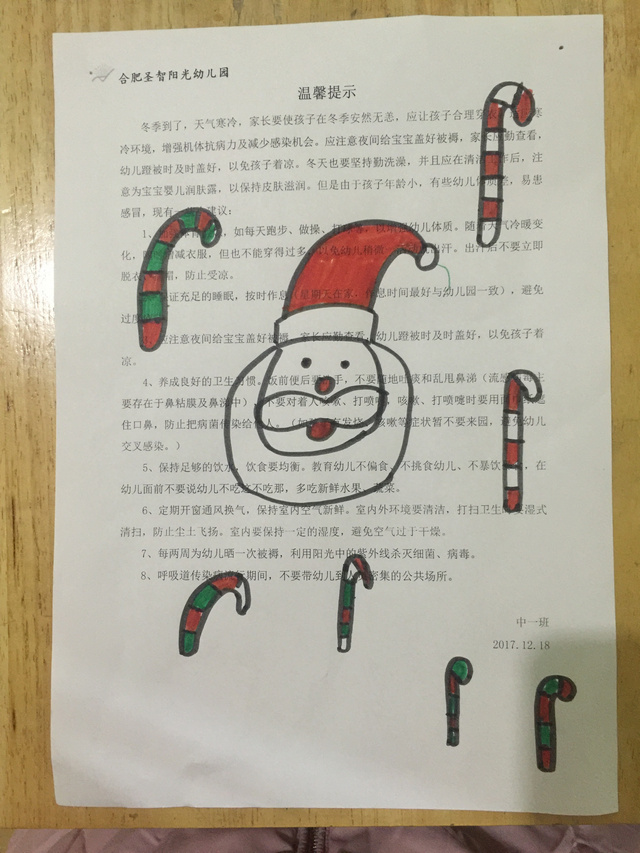 合肥圣智阳光幼儿园
温馨提示
冬季到了，天气寒冷，家长要使孩子在冬季安然无恙，应让孩子合理穿衣，
冷环境，增强机体抗病力及减少感染机会。应注意夜间给宝宝盖好被褥，家长应勤查看，
幼儿蹬被时及时盖好，以免孩子着凉。冬天也要坚持勤洗澡，并且应在清洁 后，注
意为宝宝婴儿润肤露，以保持皮肤滋润。但是由于孩子年龄小，有些幼儿体质差，易患
感冒，现有 建议：
1、 ，如每天跑步、做操、 幼儿体质。随着天气冷暖变
化， 增减衣服，但也不能穿得过多，以免幼儿稍微 出汗。出汗后不要立即
脱衣 帽，防止受凉。
证充足的睡眠，按时作息（星期天在家，作息时间最好与幼儿园一致），避免
过度
应注意夜间给宝宝盖好被褥，家长应勤查看，幼儿蹬被时及时盖好，以免孩子着
凉。
4、养成良好的卫生习惯。饭前便后要洗手，不要随地吐痰和乱甩鼻涕（流感病毒主
要存在于鼻粘膜及鼻涕中），不要对着人咳嗽、打喷嚏，咳嗽、打喷嚏时要用 捂
住口鼻，防止把病菌传染给他人。（如 有发烧、咳嗽等症状暂不要来园，避免幼儿
交叉感染。）
5、保持足够的饮水，饮食要均衡。教育幼儿不偏食、不挑食幼儿、不暴饮 ，在
幼儿面前不要说幼儿不吃这不吃那，多吃新鲜水果、蔬菜。
6、定期开窗通风换气，保持室内空气新鲜。室内外环境要清洁，打扫卫生时要湿式
清扫，防止尘土飞扬。室内要保持一定的湿度，避免空气过于干燥。
7、每两周为幼儿晒一次被褥，利用阳光中的紫外线杀灭细菌、病毒。
8、呼吸道传染病流行期间，不要带幼儿到人员密集的公共场所。
中一班
2017.12.18